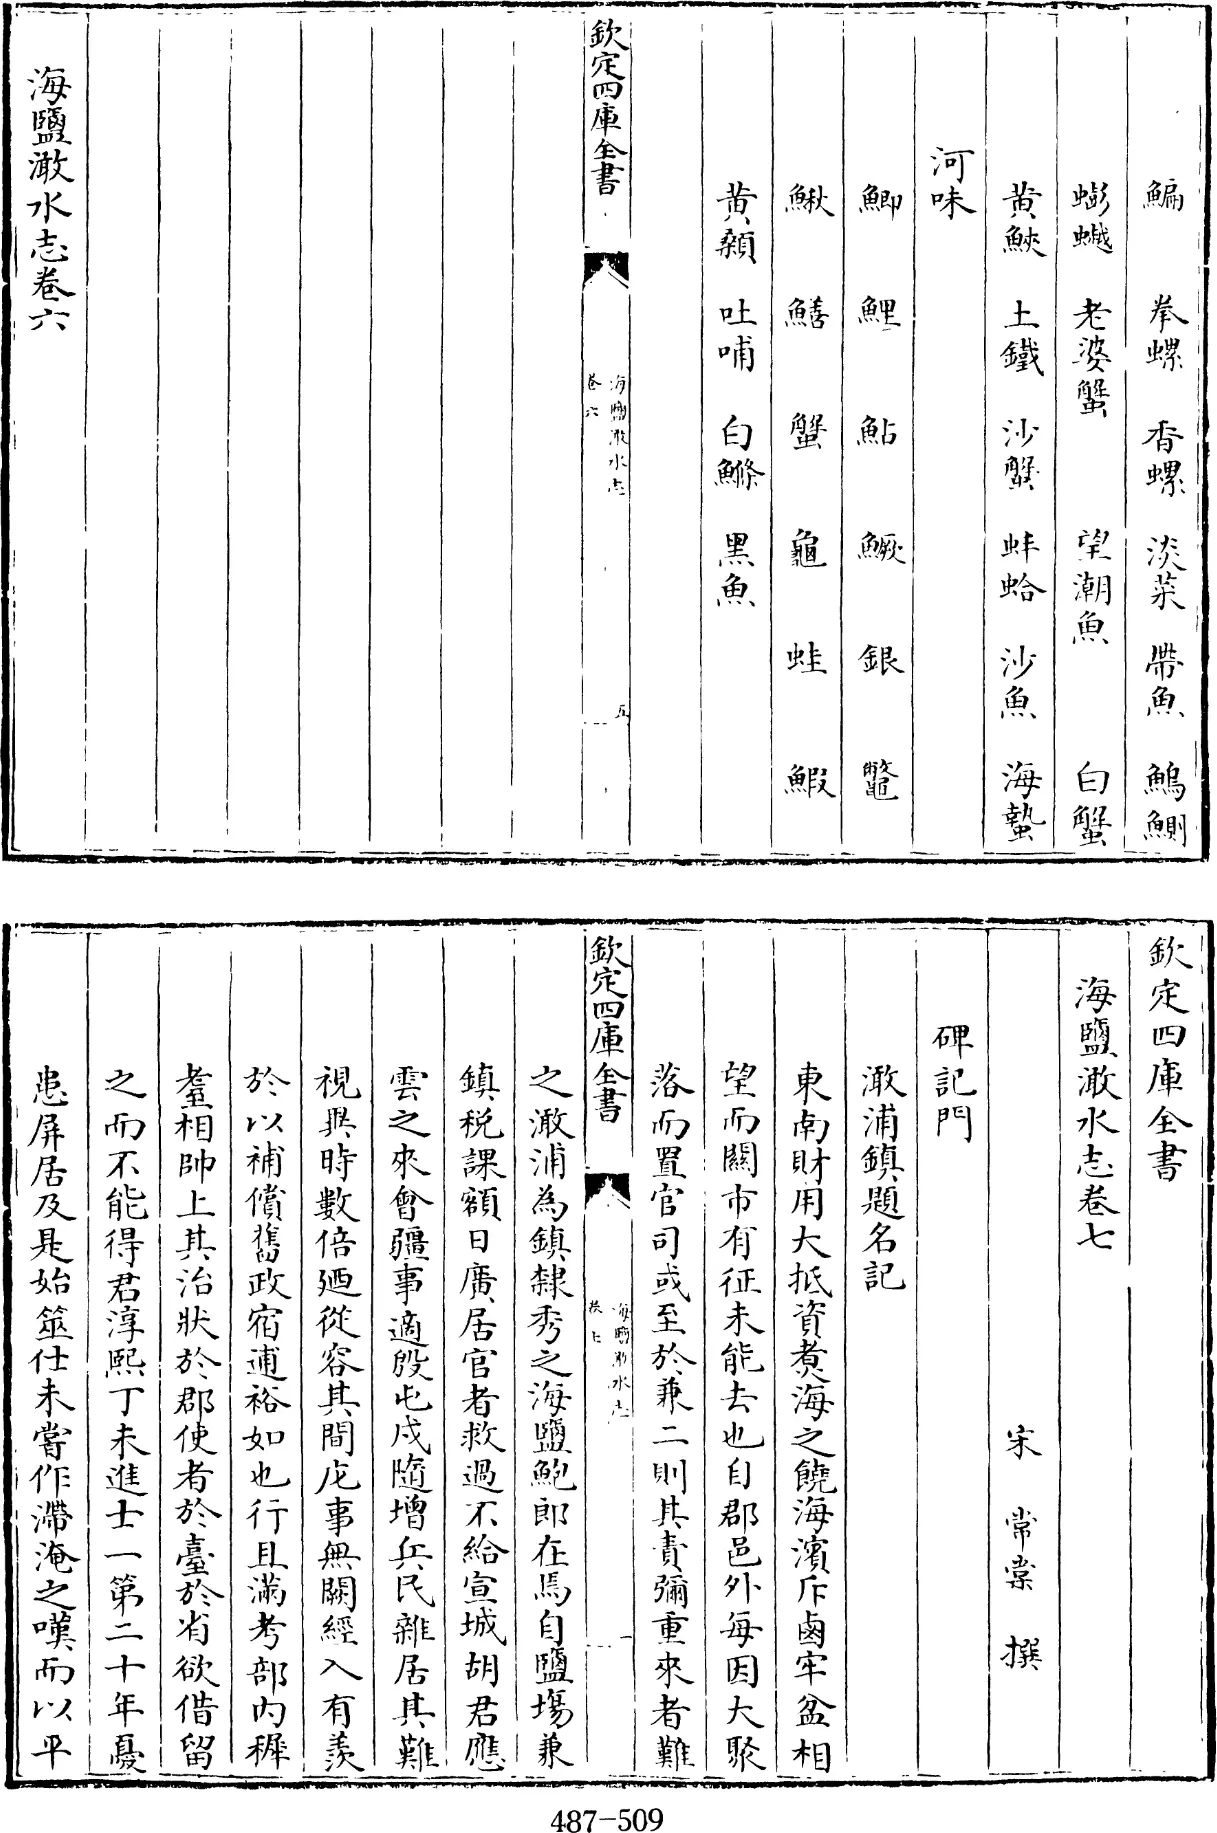 鯿 拳螺 香螺 淡菜 帶魚 鰞鰂
蟛蠘 老婆蟹 望潮魚 白蟹
黄鯸 土鐵 沙蟹 蚌蛤 沙魚 海蟄
河味
鯽 鯉 鮎 鱖 銀 鼈
鰍 鱔 蟹 龜 蛙 鰕
黄顙 吐哺 白鰷 黑魚
欽定四庫全書
海鹽澉水志
卷六
五
海鹽澉水志卷六
欽定四庫全書
海鹽澉水志卷七
宋 常棠 撰
碑記門
澉浦鎮題名記
東南財用大抵資煑海之饒海濱斥鹵牢盆相
望而關市有征未能去也自郡邑外每因大聚
落而置官司或至於兼二則其責彌重來者難
欽定四庫全書
海鹽澉水志
卷七
一
之澉浦為鎮隸秀之海鹽鮑郎在焉自鹽塲兼
鎮税課額日廣居官者救過不給宣城胡君應
雲之來會疆事適殷屯戍隨增兵民雜居其難
視異時數倍廼從容其間庀事無闕經入有羡
於以補償舊政宿逋裕如也行且滿考部内穉
耋相帥上其治狀於郡使者於臺於省欲借留
之而不能得君淳熙丁未進士一第二十年憂
患屏居及是始筮仕未嘗作滯淹之嘆而以平
487-509